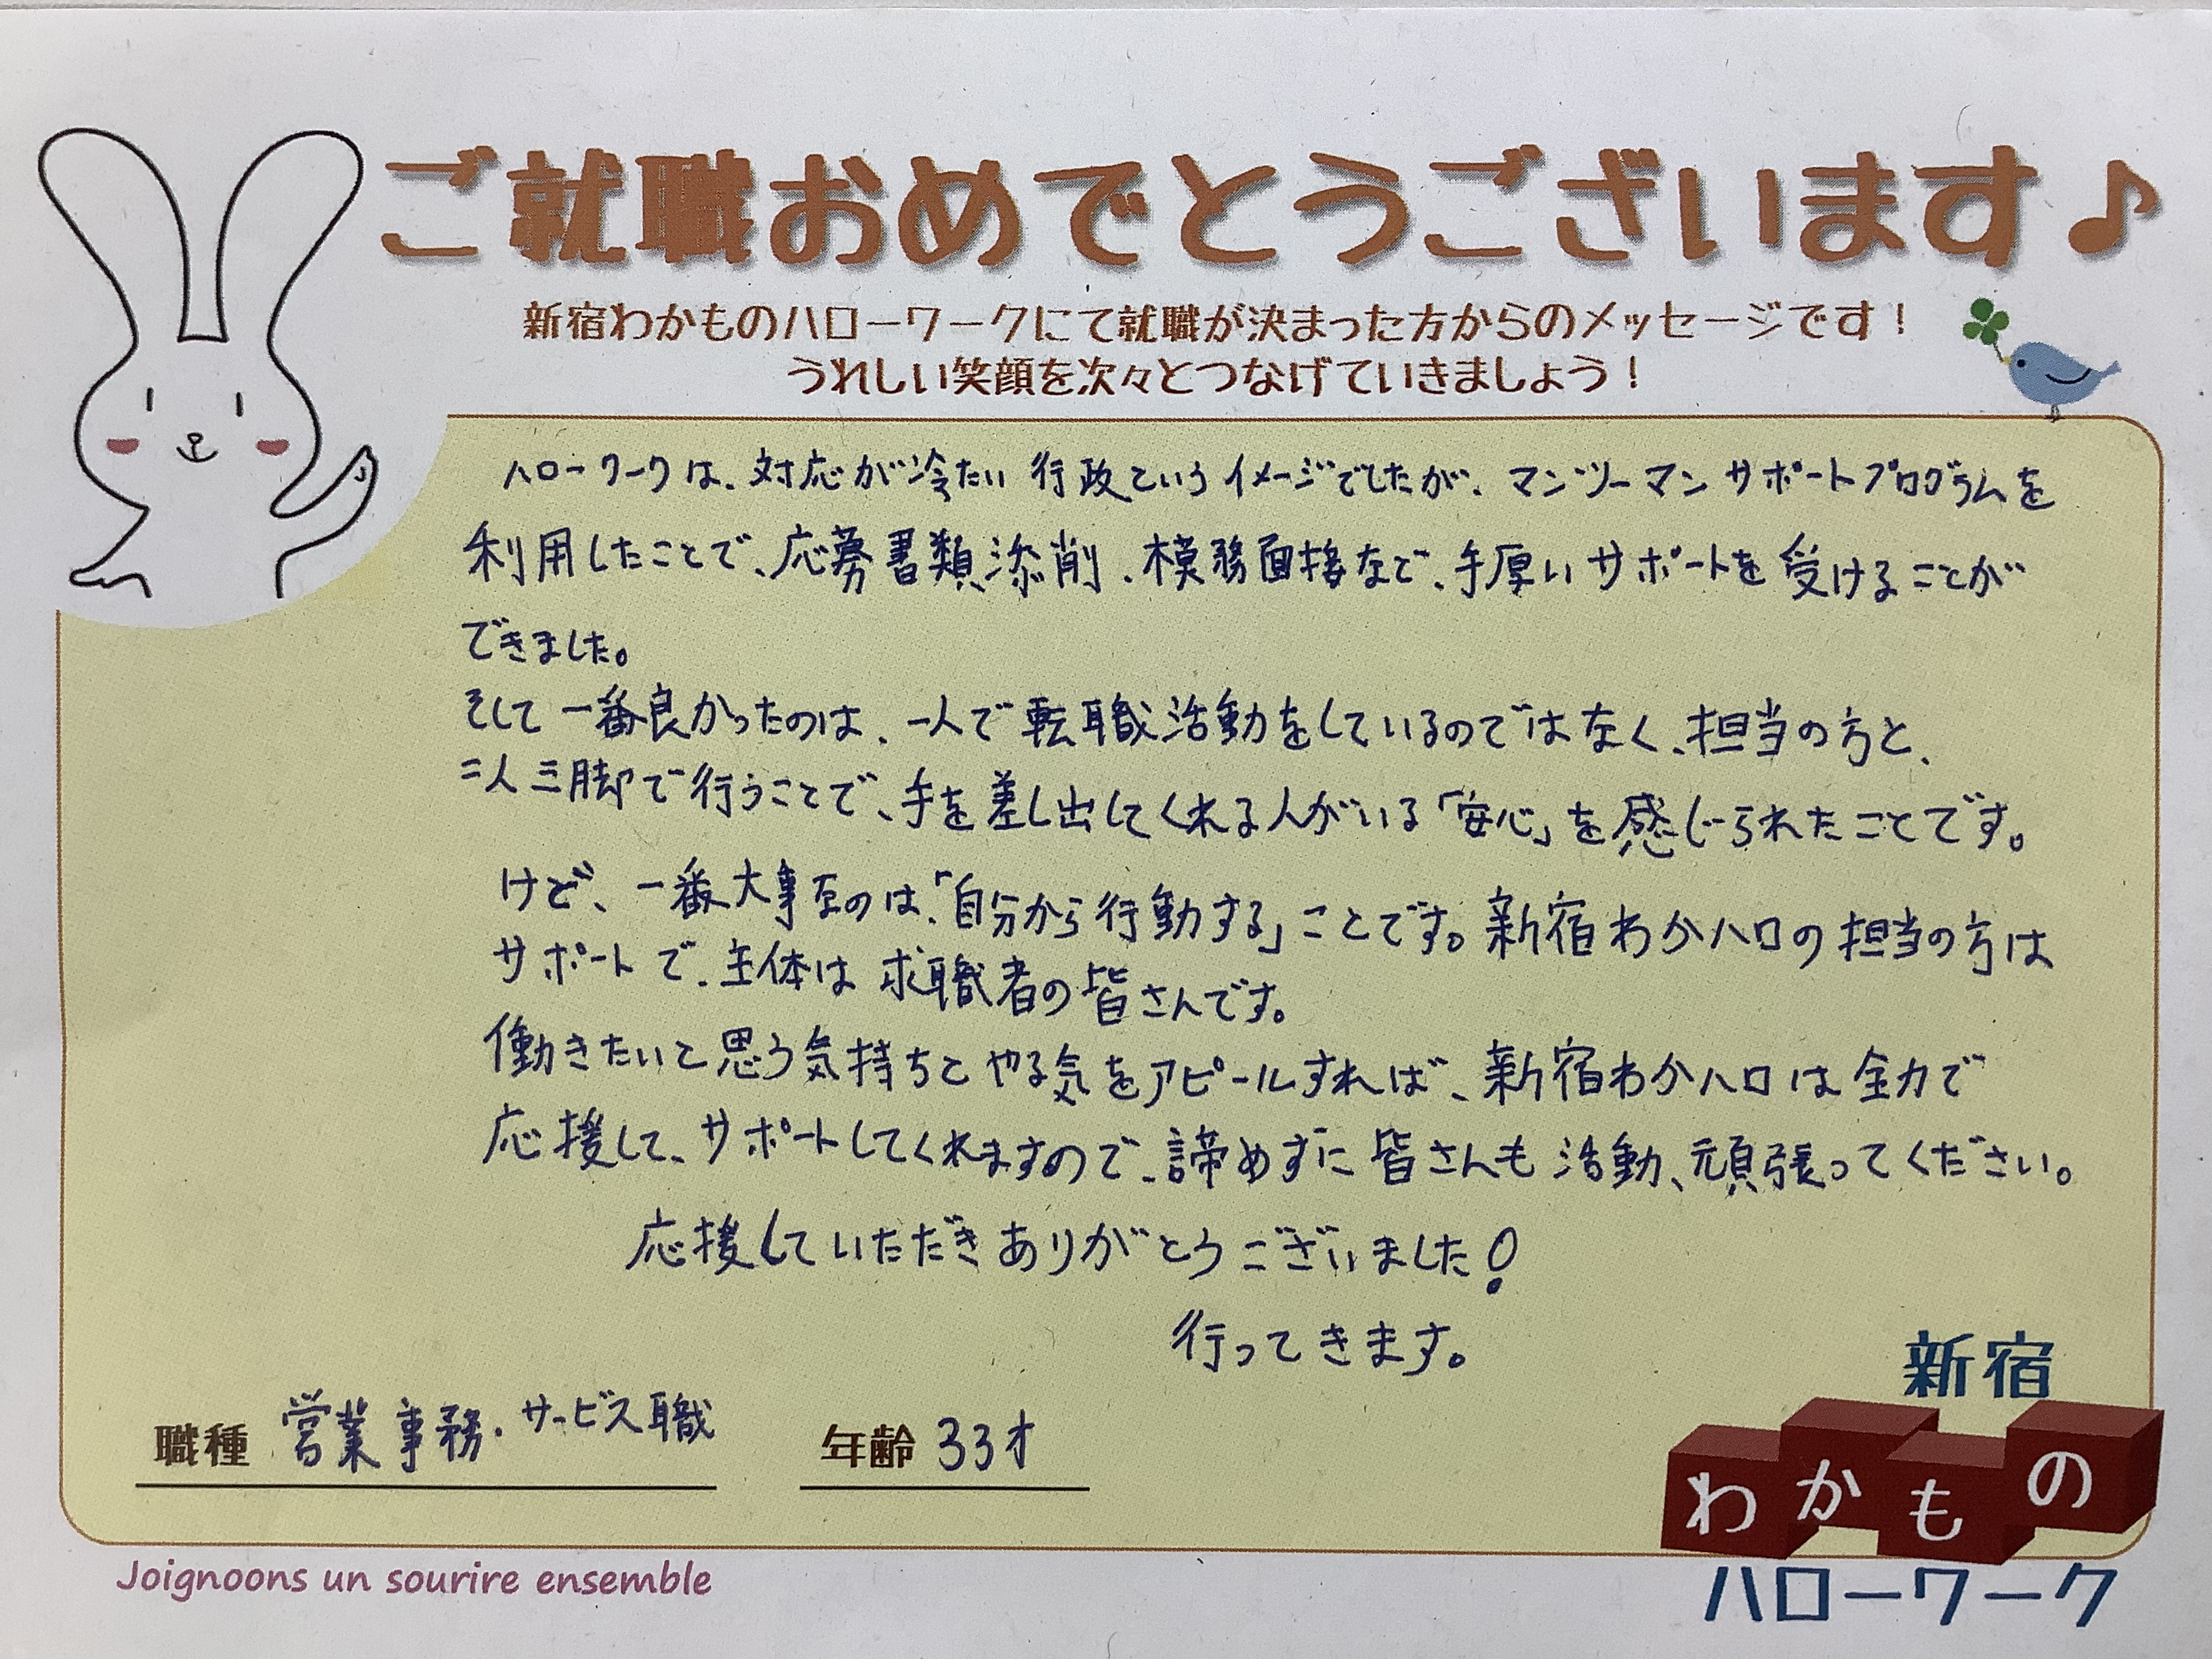 ご就職おめでとうございます♪
新宿わかものハローワークにて就職が決まった方からのメッセージです!
うれしい笑顔を次々とつなげていきましょう!
ハローワークは、対応が冷たい行政というイメージでしたが、マンツーマンサポートプログラムを
利用したことで、応募書類添削、模擬面接など、手厚いサポートを受けることが
できました。
そして一番良かったのは、一人で転職活動をしているのではなく、担当の方と、
二人三脚で行うことで、手を差し出してくれる人がいる「安心」を感じられたことです。
けど、一番大事なのは、「自分から行動する」ことです。新宿わかハロの担当の方は
サポートで、主体は求職者の皆さんです。
働きたいと思う気持ちとやる気をアピールすれば、新宿わかハロは全力で
応援して、サポートしてくれますので、諦めずに皆さんも活動、頑張ってください。
応援していただきありがとうございました!
行ってきます。
職種 営業事務・サービス職
年齢 33才
新宿
わかもの
ハローワーク
Joignoons un sourire ensemble